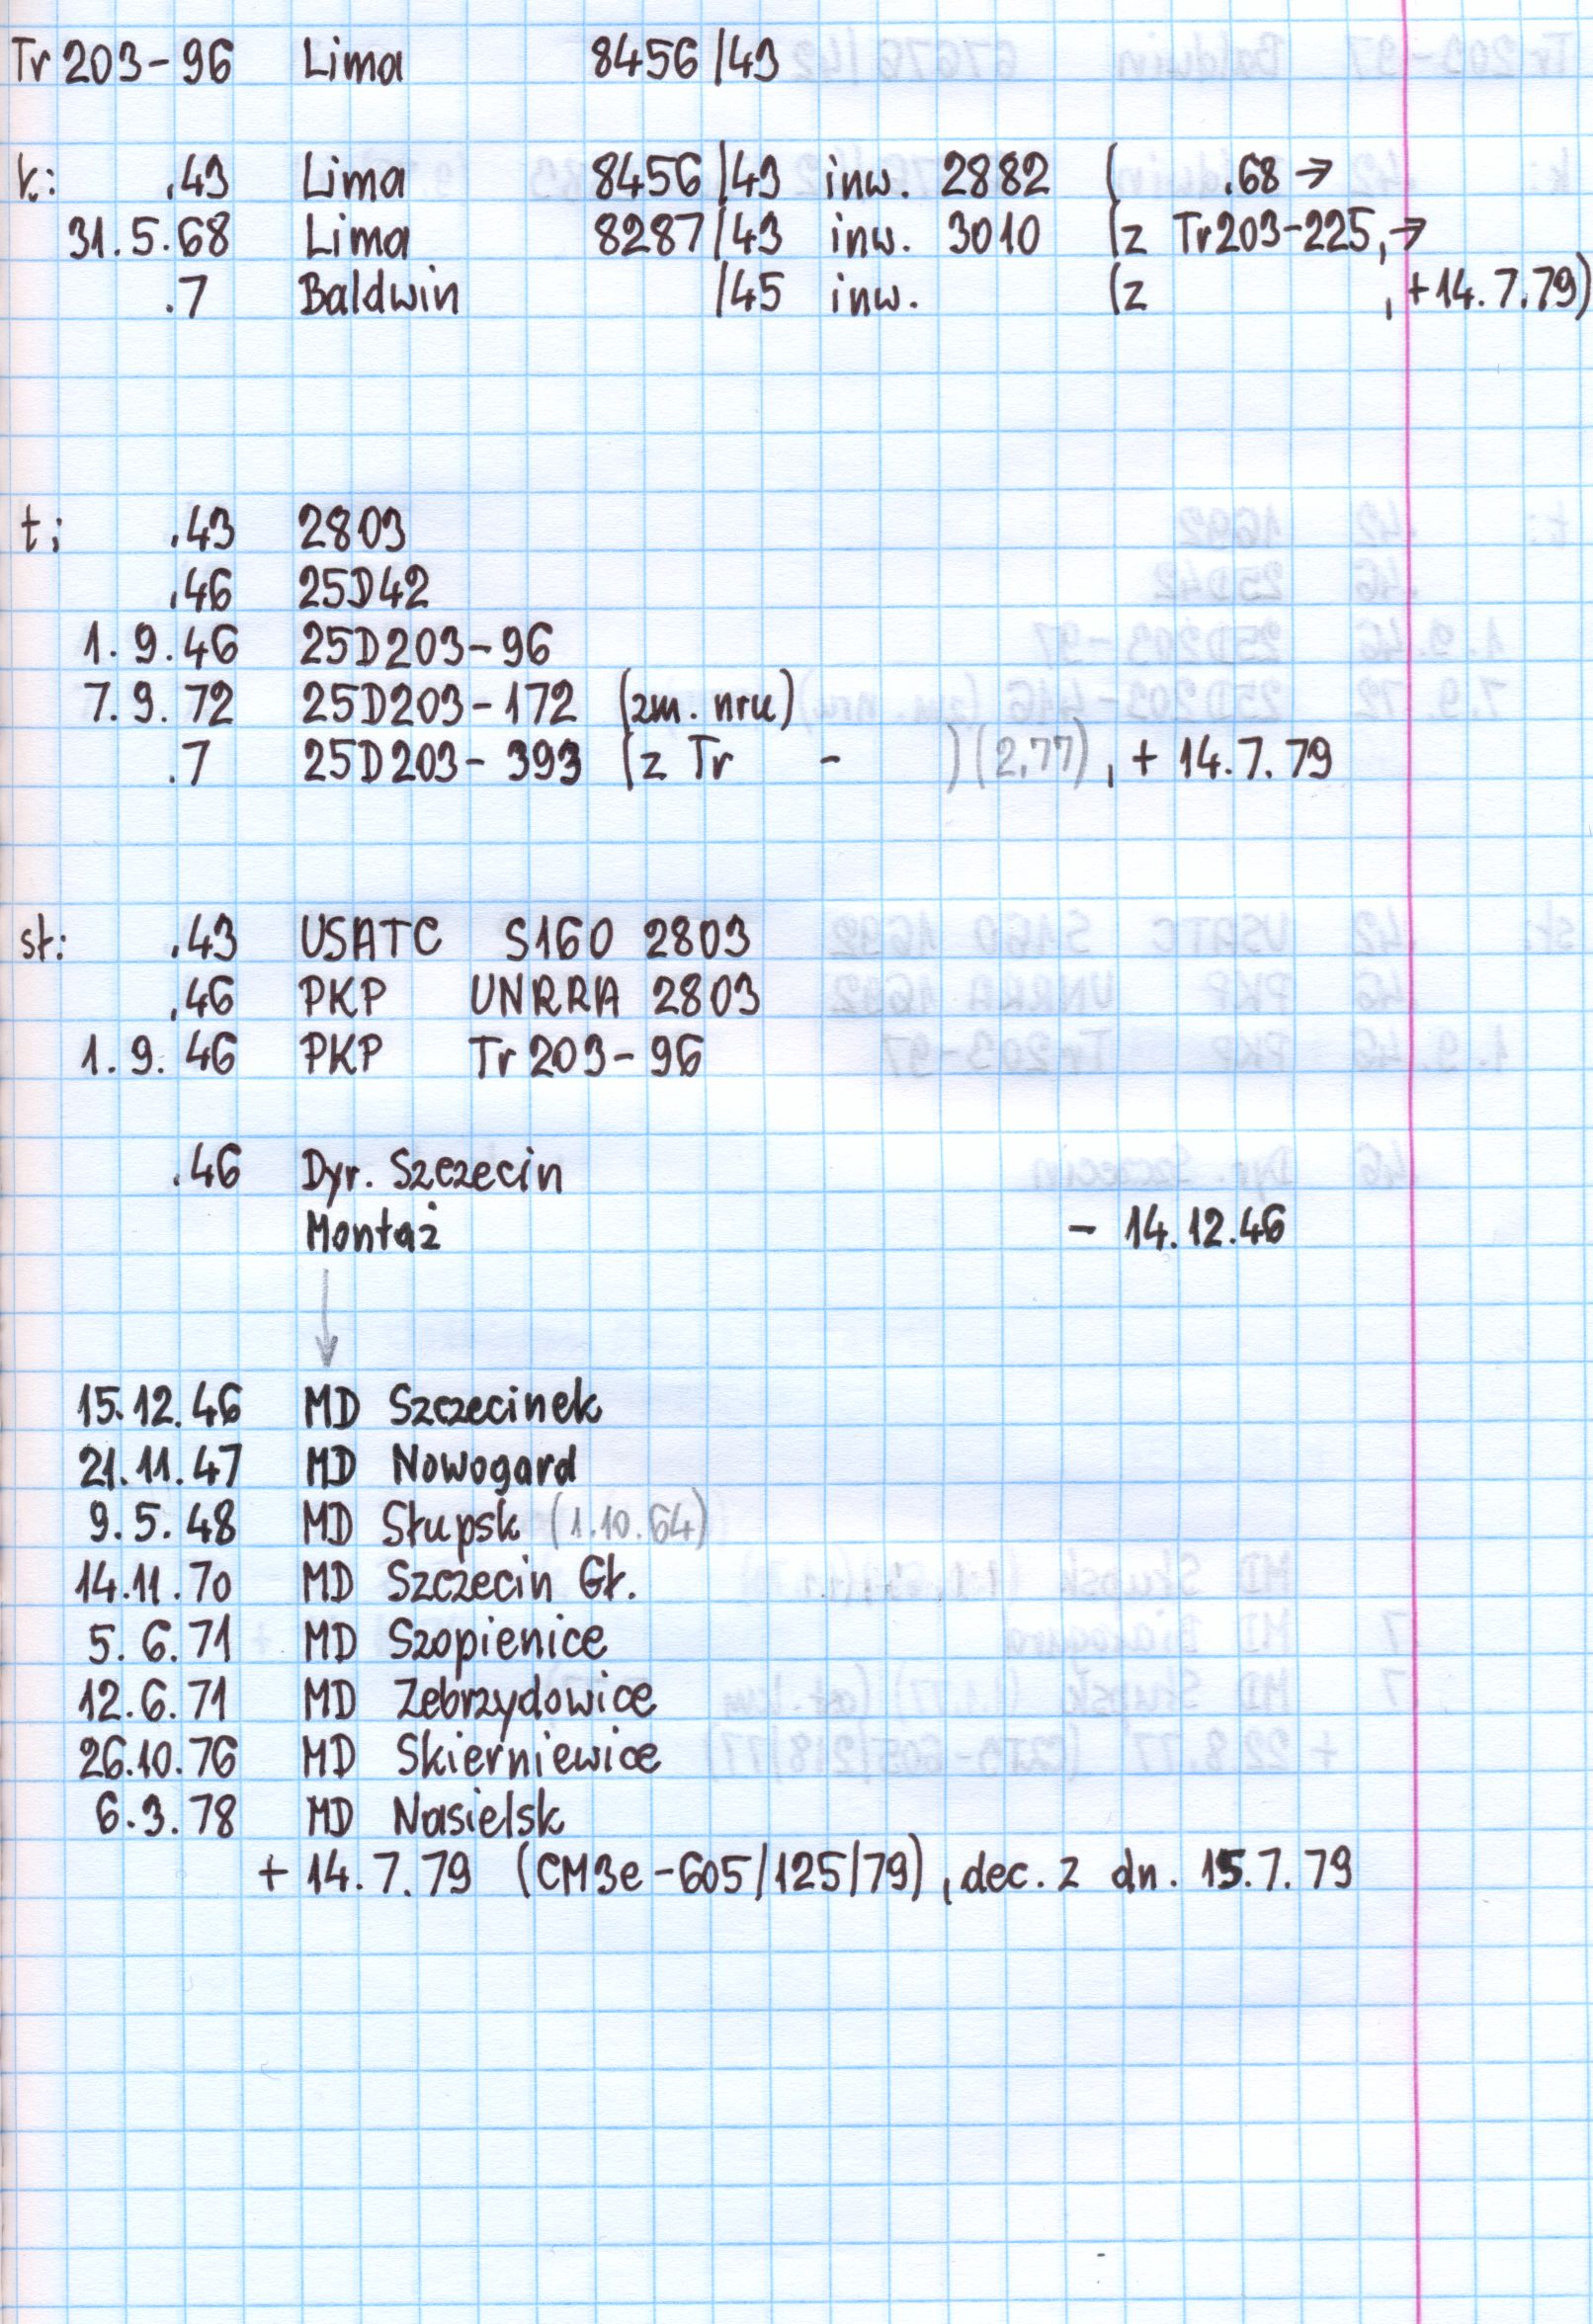 Tr 203-96 Lima 8456/43
k: .43 Lima 8456/43 inw. 2882 ( .68 →
31.5.68 Lima 8287/43 inw. 3010 (z Tr203-225, →
.7 Baldwin /45 inw. (z , +14.7.79)
t: .43 2803
.46 25D42
1.9.46 25D203-96
7.9.72 25D203-172 (zm. nru)
.7 25D203-393 (z Tr - ) (2.77), + 14.7.79
st: .43 USATC S160 2803
.46 PKP UNRRA 2803
1.9.46 PKP Tr 203-96
.46 Dyr. Szczecin
Montaż - 14.12.46
15.12.46 MD Szczecinek
21.11.47 MD Nowogard
9.5.48 MD Słupsk (1.10.64)
14.11.70 MD Szczecin Gł.
5.6.71 MD Szopienice
12.6.71 MD Zebrzydowice
26.10.76 MD Skierniewice
6.3.78 MD Nasielsk
+ 14.7.79 (CM3e-605/125/79), dec. z dn. 15.7.79